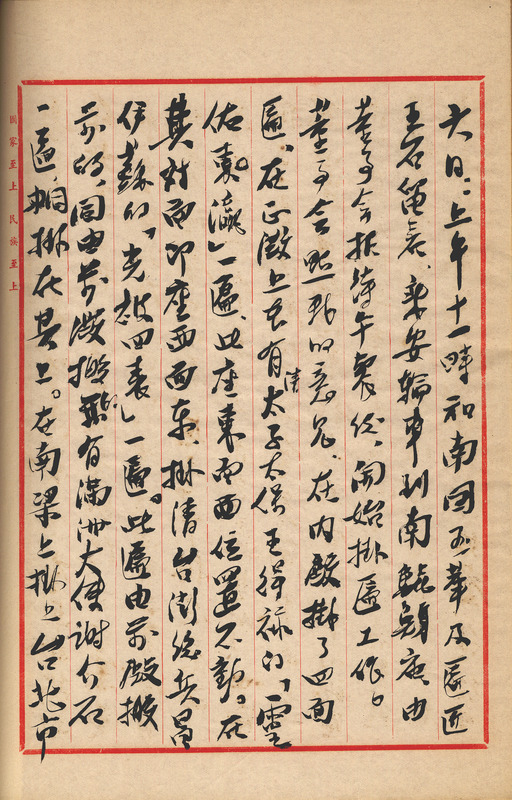 六日:上午十一時和南国五華及匾匠
王石、乘安輪車到南鯤鯓廟、由
董事会招待午餐後、開始掛匾工作。
董事会照我的意見、在内殿掛了四面
匾。在正殿上本有清太子太保王得祿的「靈
佑東瀛」一匾、此座東向西位置不動。在
其对面即座西面東、掛清台澎総兵昌
伊蘇的「光被四表」一匾。此匾由前殿搬
前的、同由前殿搬有滿洲大使謝介石
一匾相掛在其上。在南梁上掛上台北市
国家至上 民族至上